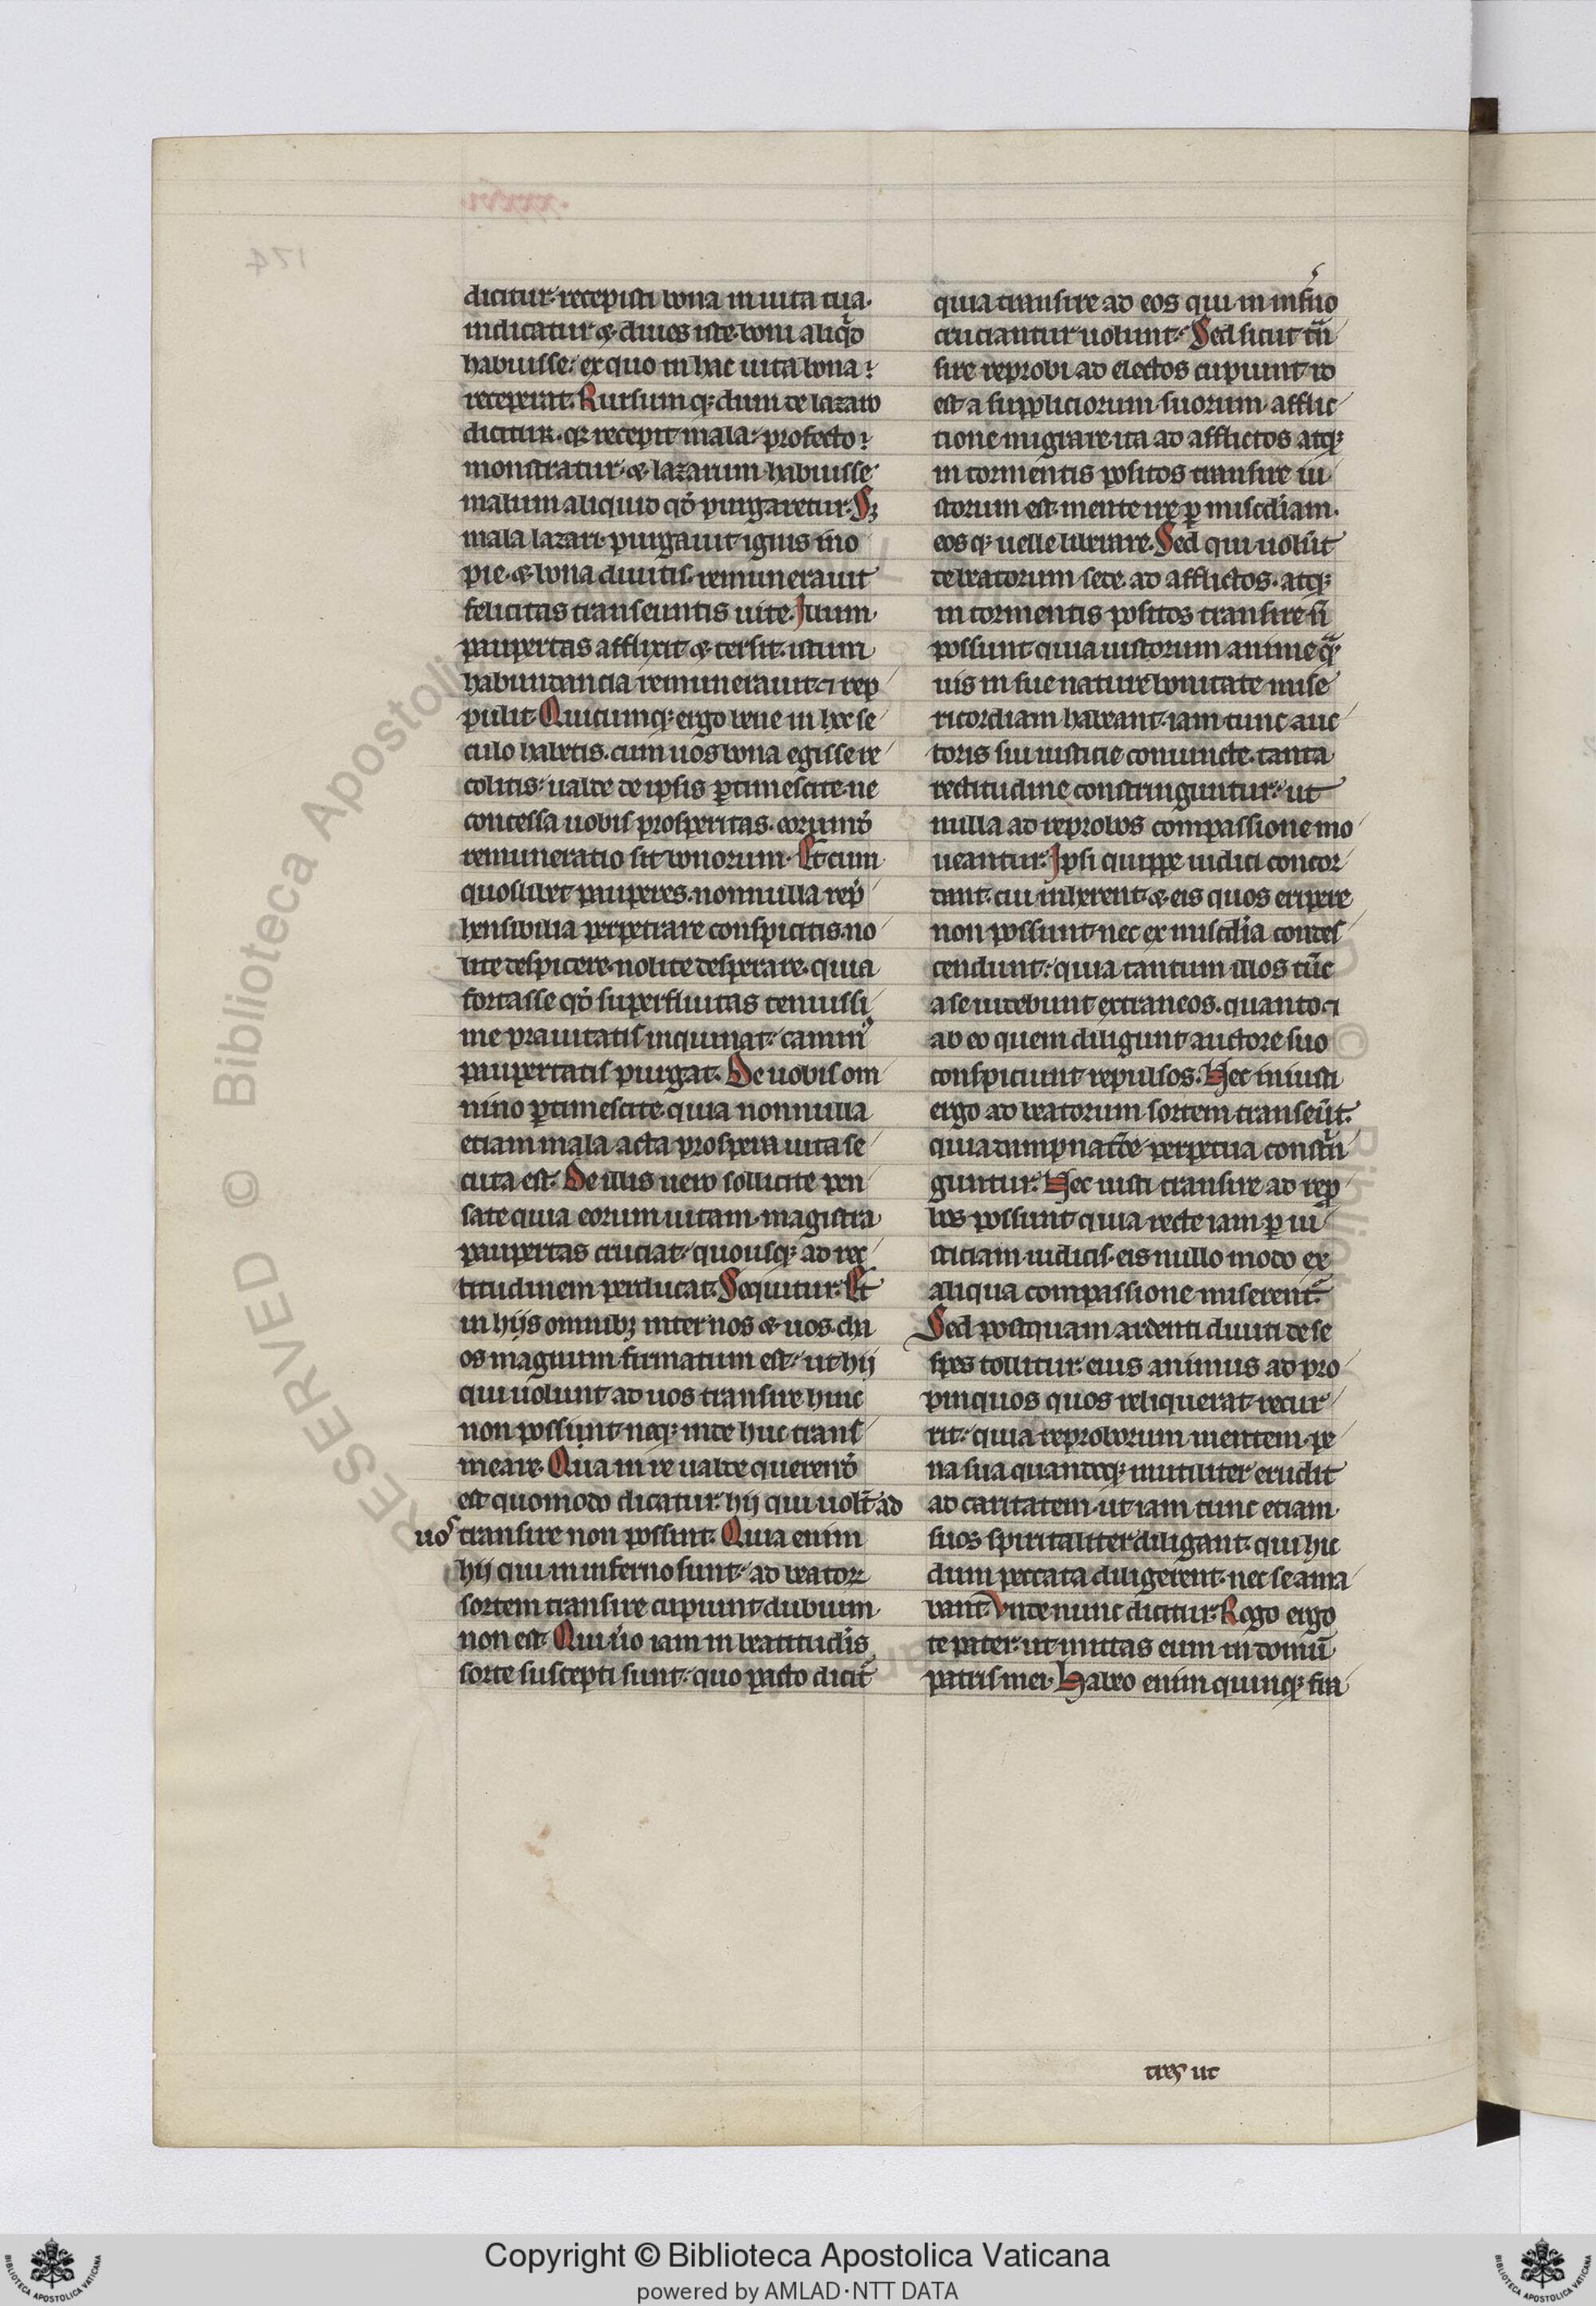 dicitur· recepisti bona in uita tua·
indicatur & diues iste· boni aliqͣd
habuisse· ex quo in hac uita bona
reciperat. Rursum qꝫ dum de lazaro
dicitur. qꝛ recepit mala· profecto
monstratur· & lazarum habuisse
malum aliquid qđ purgaretur. Sꝫ
mala lazari· purgauit ignis ino
pie. & bona diuitis. remunerauit
felicitas transeuntis uite. Illum
paupertas afflixit & tersit. istum
habundancia remunerauit ⁊ rep
pulit. Quicumqꝫ ergo bene in hoc se
culo habetis. cum uos bona egisse re
colitis· ualde de ipsis ꝑtimescite· ne
concessa uobis prosperitas. eorumđ
remuneratio sit bonorum. Et cum
quoslibet pauperes. nonnulla rep̄
hensibilia perpetrare conspicitis. no
lite despicere. nolite desperare. quia
fortasse qđ superfluitas tenuissi
me prauitatis inquinat· camin⁹
paupertatis purgat. De uobis om
nino ꝑtimescite quia nonnulla
etiam mala acta prospera uita se
cuta est. De illis uero sollicite pen
sate quia eorum uitam· magistra
paupertas cruciat· quousqꝫ ad rec
titudinem perducat. Sequitur. Et
in hijs omnibꝫ inter nos & uos. cha
os magnum firmatum est· ut hij
qui uolunt ad uos transire hinc
non possunt neqꝫ inde huc trans
meare. Qua in re ualde querenđ
est quomodo dicatur. hij qui uolt̄ ad
uos transire non possunt. Quia enim
hij qui in inferno sunt· ad beatoꝝ
sortem transire cupiunt dubium
non est. Qui ů̄o iam in beatitudīs
sorte suscepti sunt· quo pacto dicit᷑
quia transire ad eos qui in inf̄no
cruciantur uolunt. Sed sicut tᷓn
sire reprobi ad electos cupiunt id
est a suppliciorum suorum afflic
tione migrare. ita ad afflictos atqꝫ
in tormentis positos transire iu
storum est. mente ire ꝑ misc̄diam.
eos qꝫ uelle liberare. Sed qui uolūt
de beatorum sede. ad afflictos. atqꝫ
in tormentis positos transire n̄
possunt quia iustorum anime qͣ
uis in sue nature bonitate mise
ricordiam habeant. iam tunc auc
toris sui iusticie coniuncte. tanta
rectitudine constringuntur· ut
nulla ad reprobos compassione mo
ueantur. Ipsi quippe iudici concor
dant. cui inherent. & eis quos eripere
non possunt nec ex miscd̄ia condes
cendunt· quia tantum illos tūc
a se uidebunt extraneos. quanto ⁊
ab eo quem diligunt auctore suo
conspiciunt repulsos. Nec iniusti
ergo ad beatorum sortem transeūt.
quia dampnatōe perpetua constͥn
guntur. Nec iusti transire ad rep̄
bos possunt quia recte iam ꝑ iu
sticiam iudicis. eis nullo modo ex
aliqua compassione miserent᷑.
Sed postquam ardenti diuiti de se
spes tollitur. eius animus ad pro
pinquos quos reliquerat recur
rit· quia reproborum mentem pe
na sua quandoqꝫ inutiliter erudit
ad caritatem. ut iam tunc etiam
suos spiritaliter diligant. qui hic
dum peccata diligerent. nec se ama
bant. Vnde nunc dicitur. Rogo ergo
te pater. ut mittas eum in domū
patris mei. Habeo enim quinqꝫ fra
tres ut
xxxvi
174
RESERVED © Biblioteca Apostolic
© Bibliot
Copyright © Biblioteca Apostolica Vaticana
powered by AMLAD·NTT DATA
BIBLIOTECA APOSTOLICA VATICANA
BIBLIOTECA APOSTOLICA VATICANA